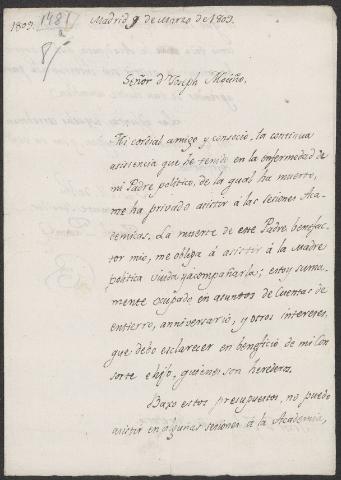 1809.
1481
a
8/
Madrid 9 de Marzo de 1809.
Señor Dⁿ Joseph Moziño.
Mi cordial amigo y consocio, la continua
asistencia que he tenido en la enfermedad de
mi Padre politico, de la qual ha muerto,
me ha privado asistir á las sesiones Aca-
demicas. La muerte de este Padre benefac-
tor mio, me obliga á asistir á la Madre
politica viuda y acompañarla; estoy suma-
mente ocupado en asuntos de Cuentas de
entierro, anniversario, y otros intereses,
que debo esclarecer en beneficio de mi Con
sorte e hijo, quienes son herederos.
Baxo estos presupuestos, no puedo
asistir en algunas sesiones á la Academia,